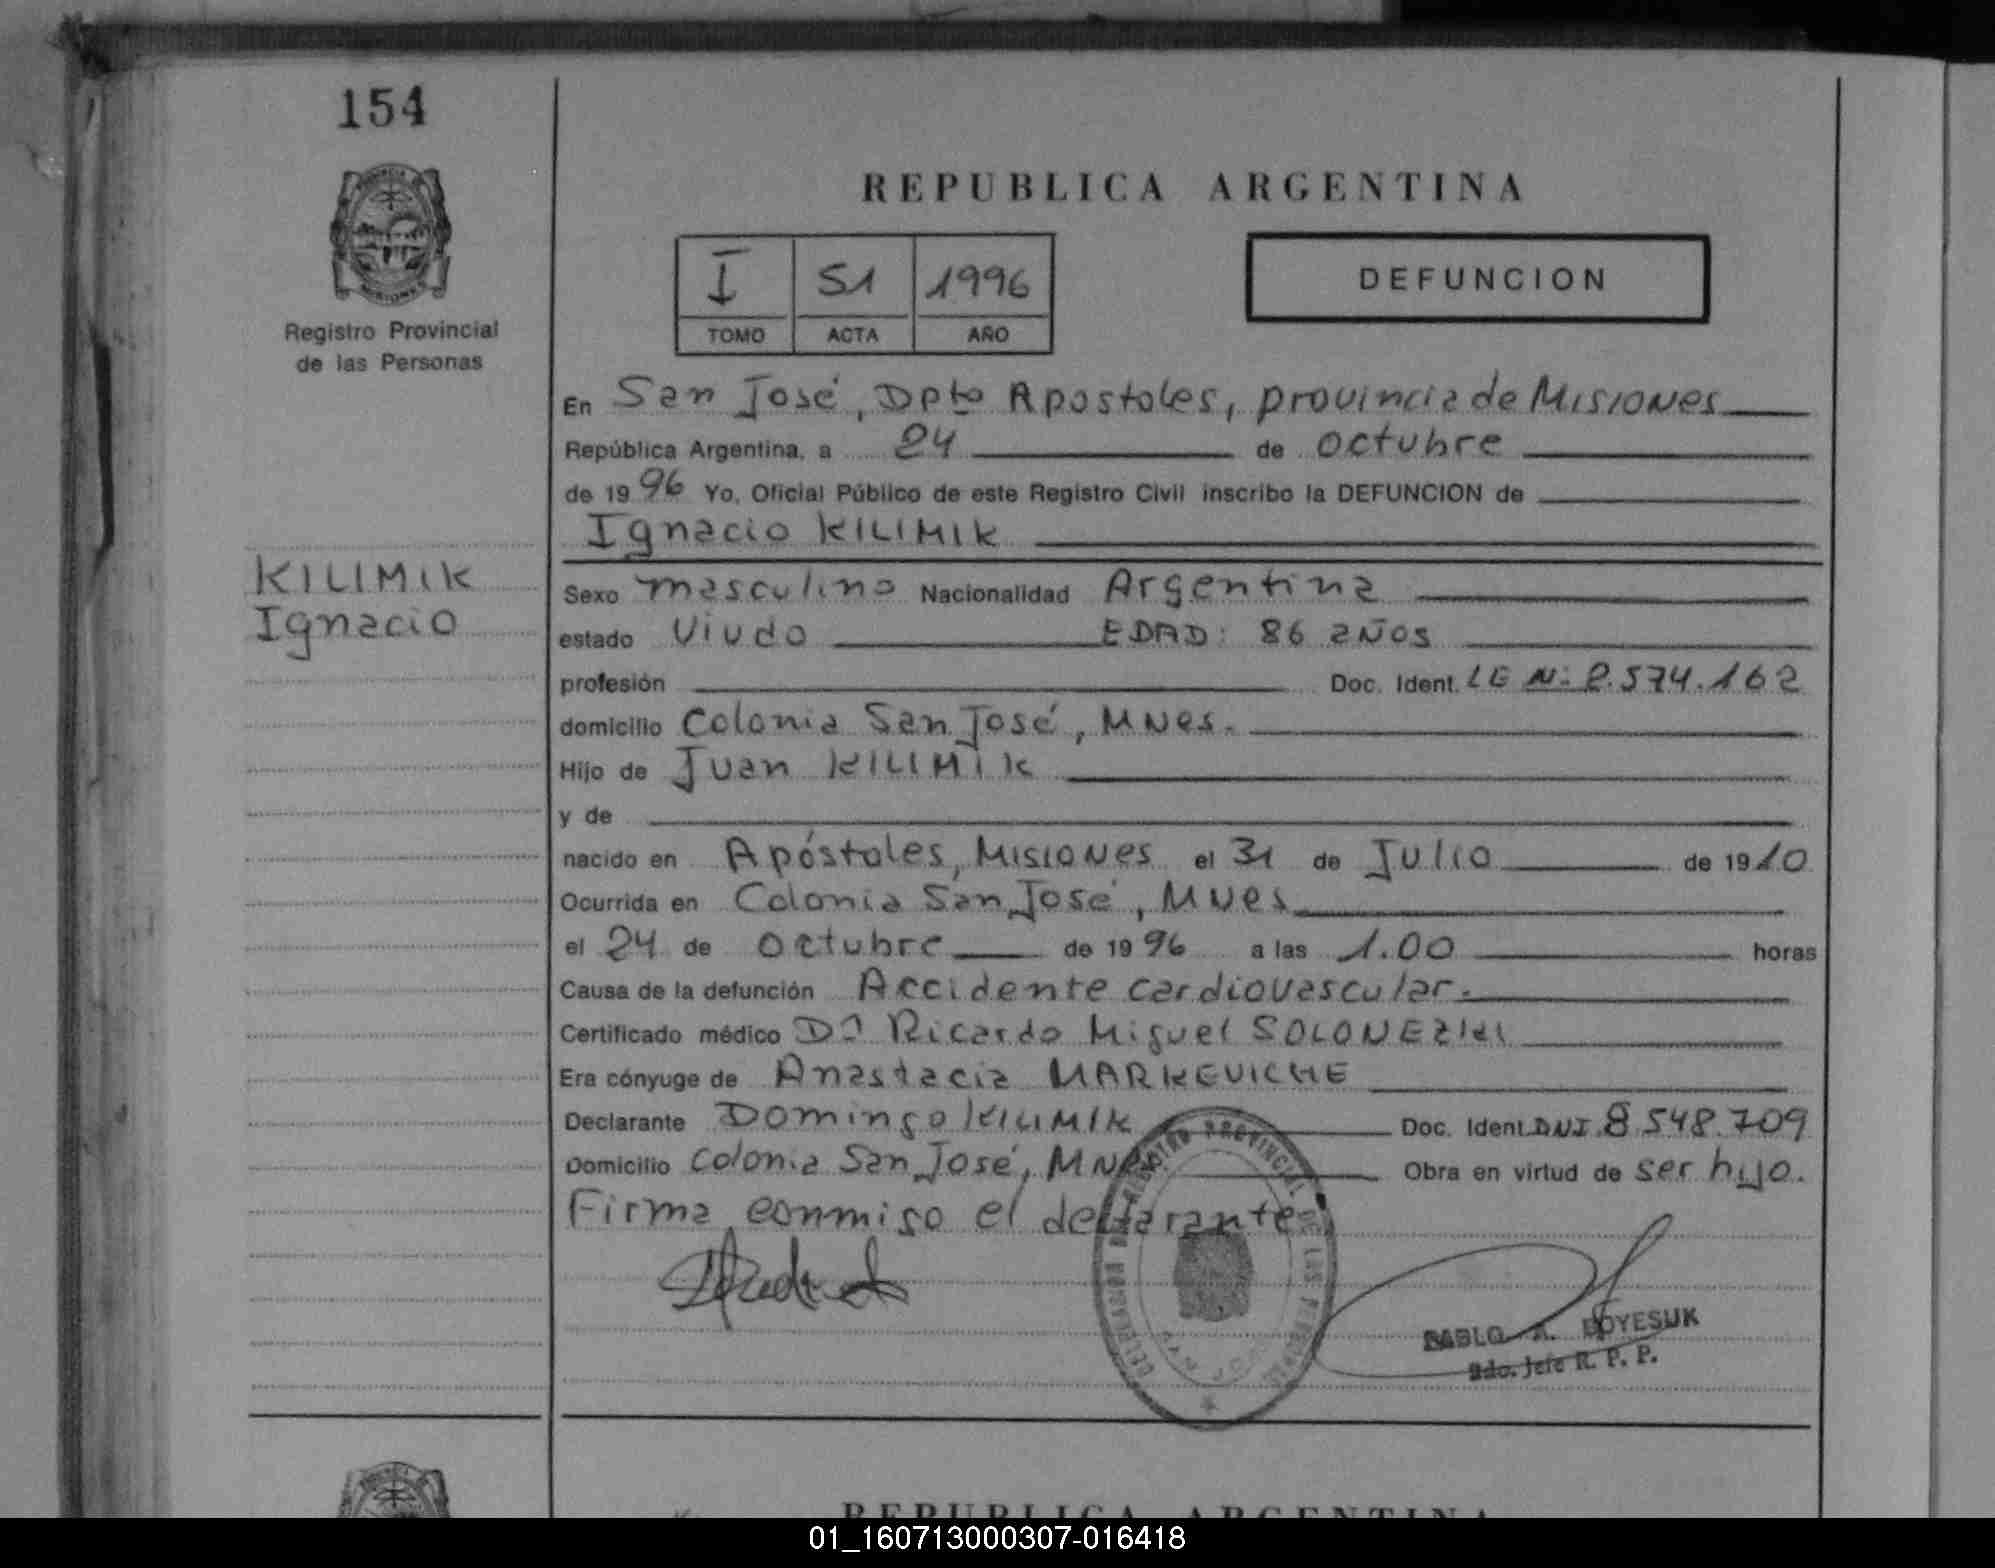 154
Registro Provincial
de las Personas
REPUBLICA ARGENTINA
I 51 1996
TOMO ACTA AÑO
DEFUNCION
En San José, Dpto Apostoles, provincia de Misiones
República Argentina, a 24 de octubre
de 1996 Yo, Oficial Público de este Registro Civil inscribo la DEFUNCION de
Ignacio KILIMIK
KILIMIK
Ignacio
Sexo masculino Nacionalidad Argentina
estado Viudo EDAD: 86 años
profesión Doc. Ident. LE N: 2.574.162
domicilio Colonia San José, MNes.
Hijo de Juan KILIMIK
y de
nacido en Apóstoles, Misiones el 31 de Julio de 1910
Ocurrida en Colonia San José, MNes
el 24 de octubre de 1996 a las 1.00 horas
Causa de la defunción Accidente cardiovascular.
Certificado médico Dr Ricardo Miguel SOLONEZIKI
Era cónyuge de Anastacia MARKEVICHE
Declarante Domingo KILIMIK Doc. Ident. DNI 8.548.709
Domicilio Colonia San José, MNes Obra en virtud de ser hijo.
Firma conmigo el declarante
DELEGACION DEL REGISTRO PROVINCIAL DE LAS PERSONAS
SAN JOSE
PABLO A. BOYESUK
2do. Jefe R. P. P.
REPUBLICA ARGENTINA
01_160713000307-016418